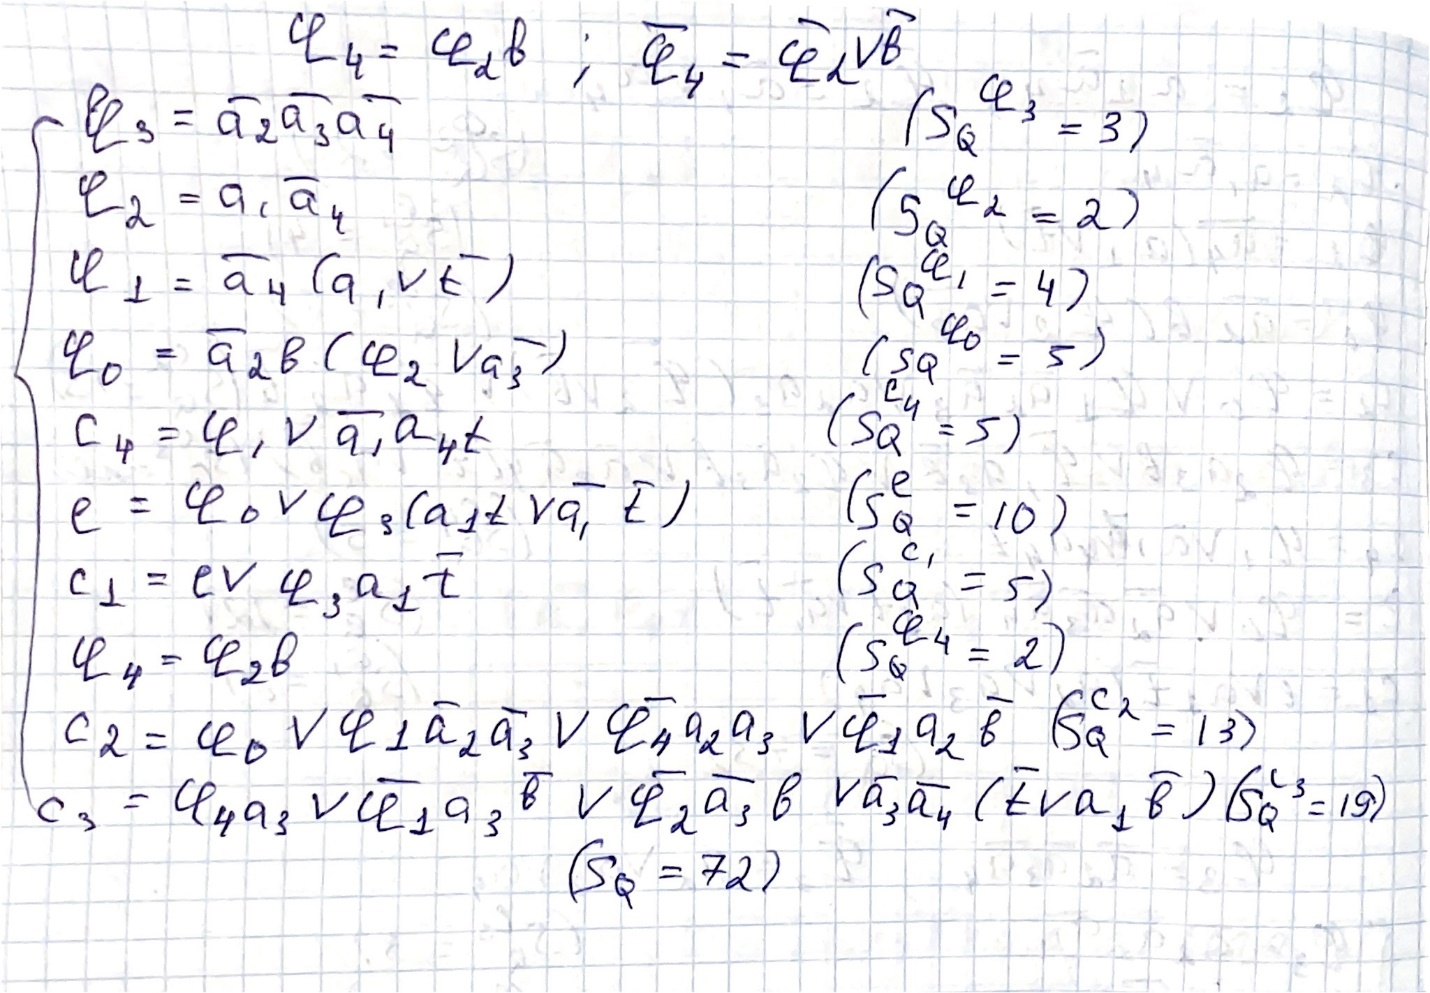 φ₄ = φ₂в ; φ̄₄ = φ̄₂ ∨ в̄
φ₃ = ā₂ā₃ā₄ (S_Q^φ₃ = 3)
φ₂ = a₁ā₄ (S_Q^φ₂ = 2)
φ₁ = ā₄(a₁ ∨ t̄) (S_Q^φ₁ = 4)
φ₀ = ā₂в(φ₂ ∨ ā₃) (S_Q^φ₀ = 5)
c₄ = φ₁ ∨ ā₁a₄t (S_Q^c₄ = 5)
e = φ₀ ∨ φ₃(a₁t ∨ ā₁ t̄) (S_Q^e = 10)
c₁ = e ∨ φ₃a₁t̄ (S_Q^c₁ = 5)
φ₄ = φ₂в (S_Q^φ₄ = 2)
c₂ = φ₀ ∨ φ₁ā₂ā₃ ∨ φ̄₄a₂a₃ ∨ φ̄₁a₂в̄ (S_Q^c₂ = 13)
c₃ = φ₄a₃ ∨ φ̄₁a₃в̄ ∨ φ̄₂ā₃в ∨ ā₃ā₄(t̄ ∨ a₁в̄) (S_Q^c₃ = 19)
(S_Q = 72)